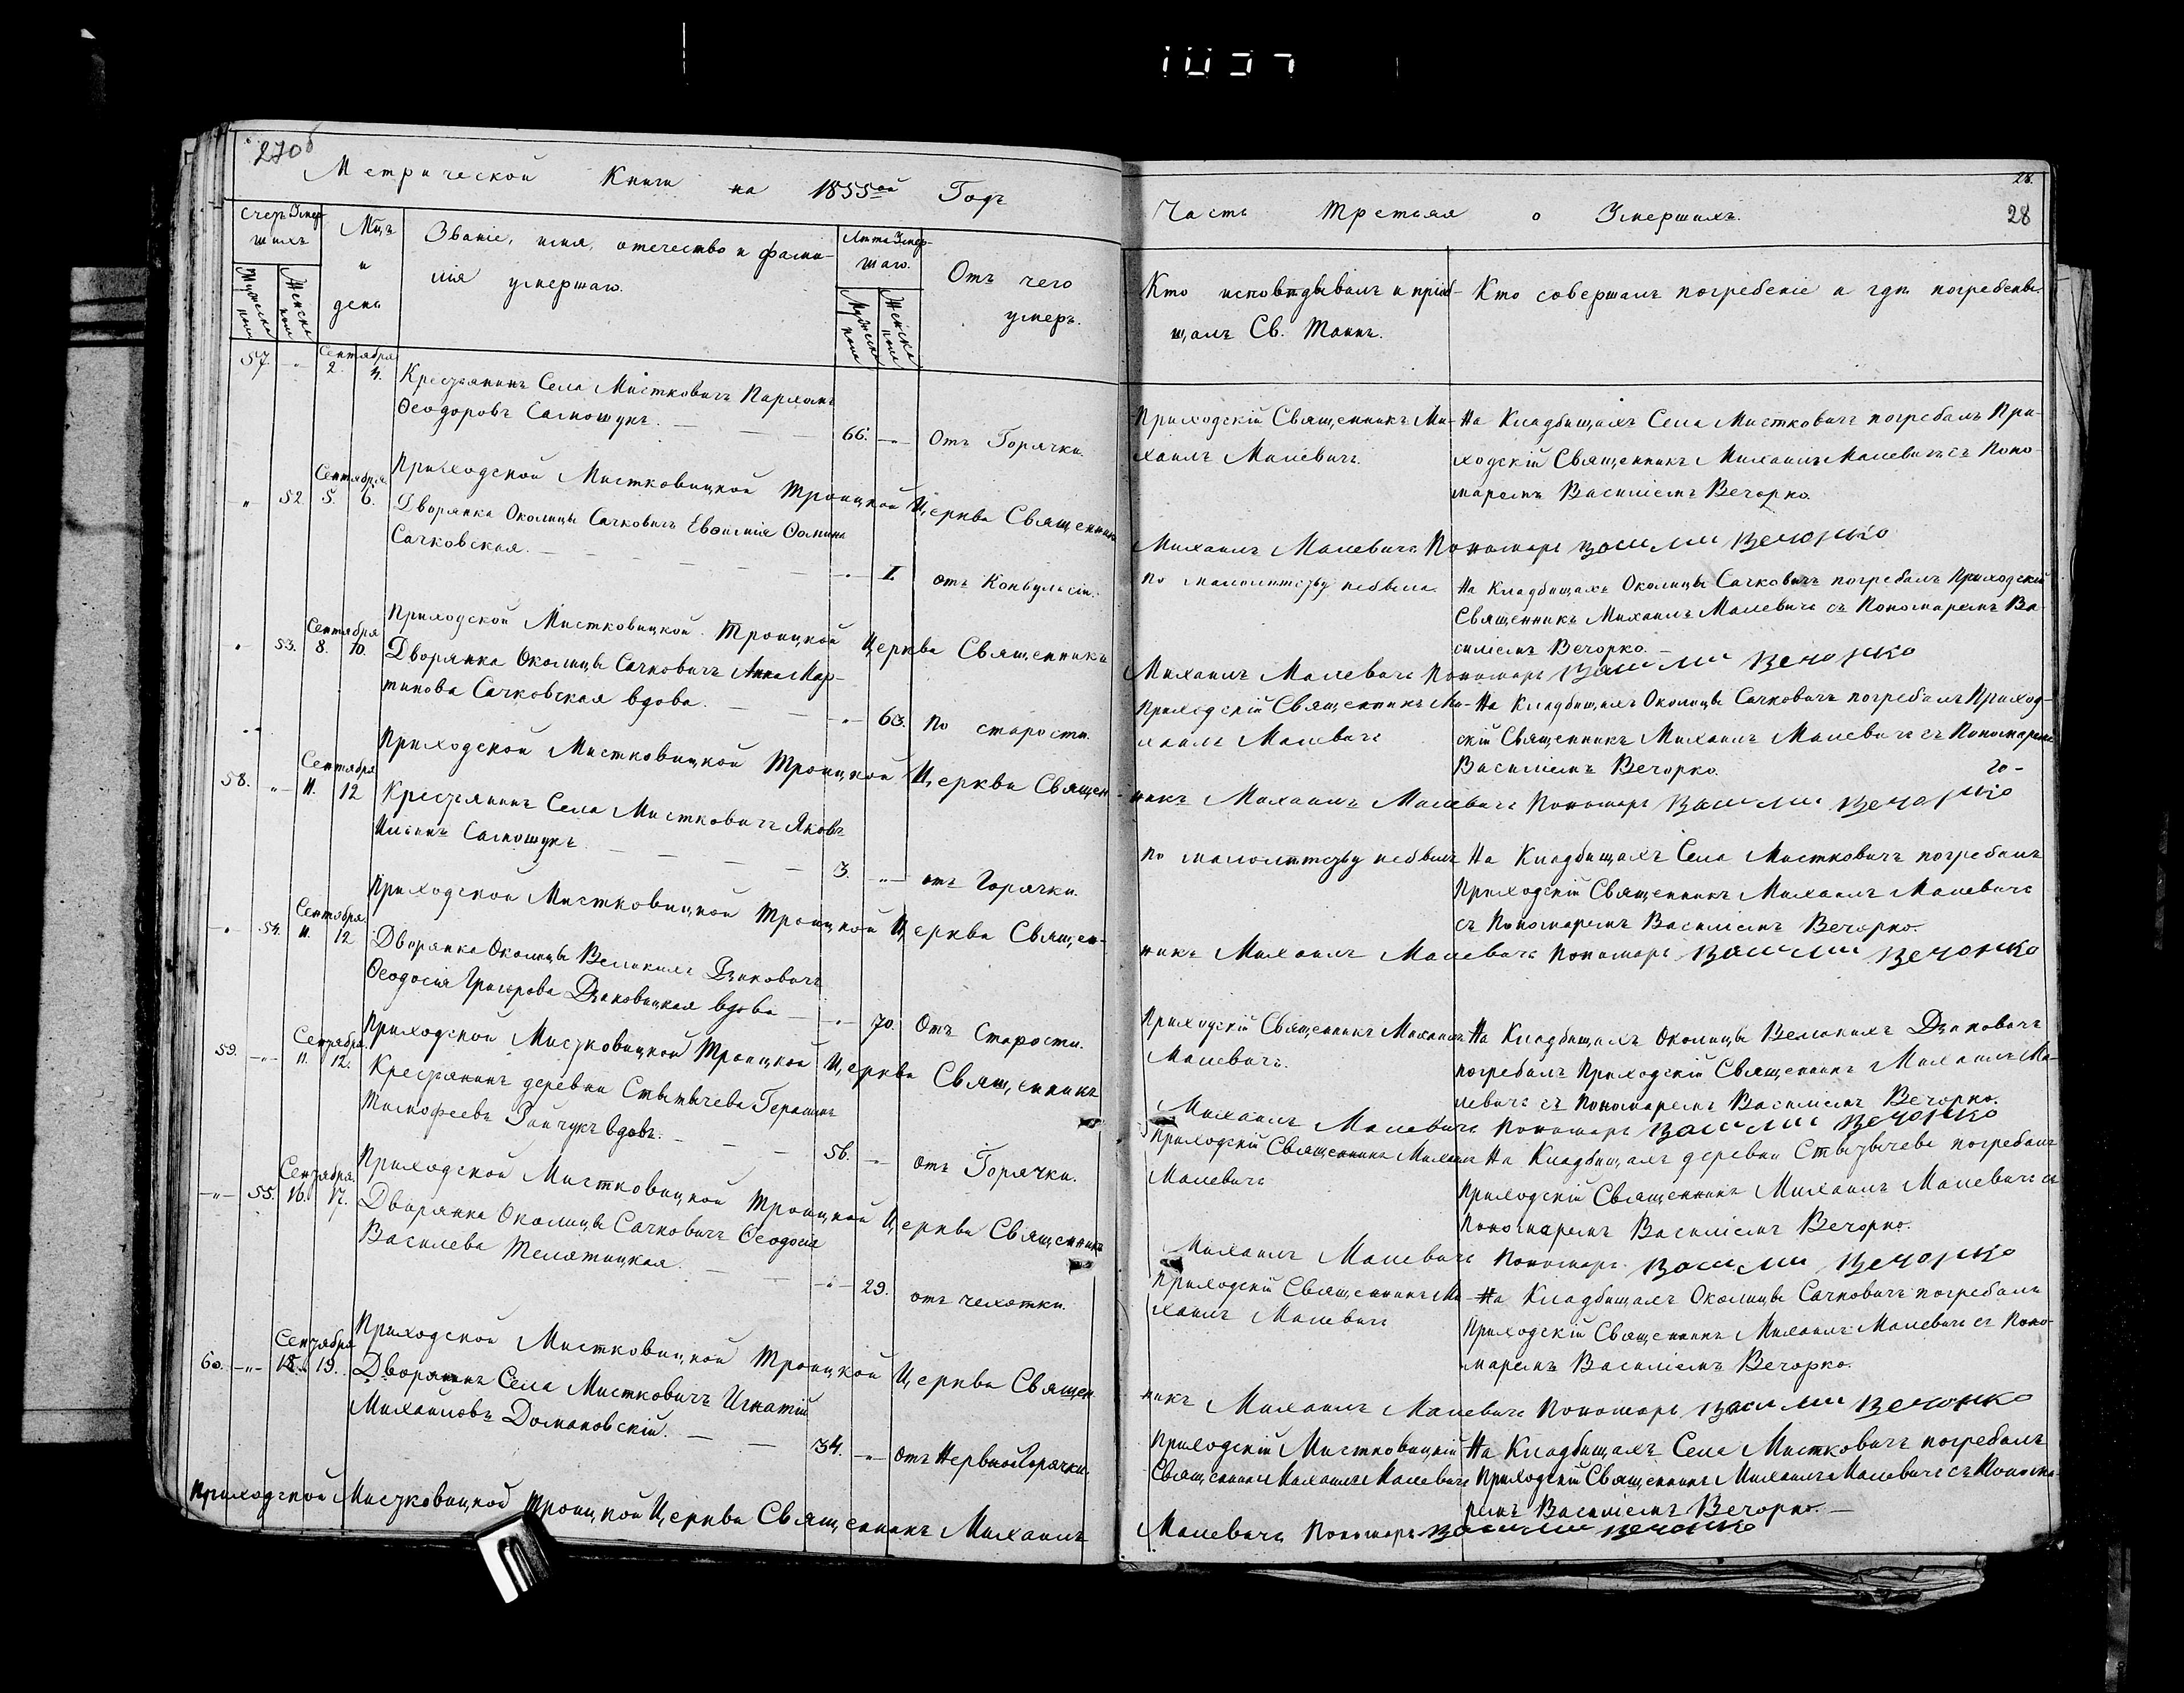 270б
Метрической Книги на 1855ой Годъ
Счетъ Умер-
шихъ
Мужеска пола
Женска пола
Мцъ
и
день
Званіе, имя, отечество и фами-
лія умершаго.
Лѣта Умер-
шаго.
Мужеска пола
Женска пола
Отъ чего
умеръ.
57. -"- Сентября
2. 4. Крестьянинъ Села Мистковичъ
Ѳеодоровъ Самошукъ. 66. -"- Отъ Горячки.
Приходской Мистковицкой Троицкой Церкви Священникъ
" 52. Сентября
5. 6. Дворянка Околицы Сачковичъ Евѳимія Ѳомина
Сачковская. -"- 1. отъ Конвульсіи.
Приходской Мистковицкой Троицкой Церкви Священникъ
" 53. Сентября
8. 10. Дворянка Околицы Сачковичъ Анна Мар-
тинова Сачковская вдова. -"- 63. По старости.
Приходской Мистковицкой Троицкой Церкви Священ-
58. " Сентября
11. 12 Крестьянинъ Села Мистковичъ Яковъ
Ильинъ Самошукъ 3. -"- отъ Горячки.
Приходской Мистковицкой Троицкой Церкви Священ-
" 54. Сентября.
11. 12 Дворянка Околицы Великихъ Дзиковичъ
Ѳеодосія Григорова Дзиковицкая вдова -"- 70. Отъ Старости.
Приходской Мистковицкой Троицкой Церкви Священникъ
59. -"- Сентября.
11. 12. Крестьянинъ деревни Стытычева Герасимъ
Тимофеевъ вдовъ. 56. -"- отъ Горячки.
Приходской Мистковицкой Троицкой Церкви Священникъ
-"- 55. Сентября.
16. 17. Дворянка Околицы Сачковичъ Ѳеодосія
Василева Телятицкая. -"- 29. отъ чехотки.
Приходской Мистковицкой Троицкой Церкви Священ-
60. -"- Сентября
18. 19. Дворянинъ Села Мистковичъ Игнатій
Михаиловъ Домановскій. 34. -"- отъ Нервной Горячки.
Приходской Мистковицкой Троицкой Церкви Священникъ Михаилъ
28.
Часть Третьяя о Умершихъ. 28
Кто исповѣдывалъ и пріоб-
щалъ Св. Таинъ.
Кто совершалъ погребеніе и гдѣ погребены.
Приходскій Священникъ Ми-
хаилъ Малевичъ.
На Кладбищахъ Села Мистковичъ погребалъ При-
ходскій Священникъ Михаилъ Малевичъ съ Поно-
маремъ Василіемъ Вечорко.
Михаилъ Малевичъ Пономарь Василий Вечорко
По малолѣтству небыла.
На Кладбищахъ Околицы Сачковичъ погребалъ Приходскій
Священникъ Михаилъ Малевичъ съ Пономаремъ Ва-
силіемъ Вечорко.
Михаилъ Малевичъ Пономарь Василий Вечорко
Приходскій Священникъ Ми-
хаилъ Малевичъ
На Кладбищахъ Околицы Сачковичъ погребалъ Приход-
скій Священникъ Михаилъ Малевичъ съ Пономаремъ
Василіемъ Вечорко.
никъ Михаилъ Малевичъ Пономарь Василий Вечорко
По малолѣтству небылъ
На Кладбищахъ Села Мистковичъ погребалъ
Приходскій Священникъ Михаилъ Малевичъ
съ Пономаремъ Василіемъ Вечорко.
никъ Михаилъ Малевичъ Пономарь Василий Вечорко
Приходскій Священникъ Михаилъ
Малевичъ.
На Кладбищахъ Околицы Великихъ Дзиковичъ
погребалъ Приходскій Священникъ Михаилъ Ма-
левичъ съ Пономаремъ Василіемъ Вечорко.
Михаилъ Малевичъ Пономарь Василий Вечорко
Приходскій Священникъ Михаилъ
Малевичъ
На Кладбищахъ деревни Стытычева погребалъ
Приходскій Священникъ Михаилъ Малевичъ съ
Пономаремъ Василіемъ Вечорко.
Михаилъ Малевичъ Пономарь Василий Вечорко
Приходскій Священникъ Ми-
хаилъ Малевичъ
На Кладбищахъ Околицы Сачковичъ погребалъ
Приходскій Священникъ Михаилъ Малевичъ съ Поно-
маремъ Василіемъ Вечорко.
никъ Михаилъ Малевичъ Пономарь Василий Вечорко
Приходскій Мистковицкій
Священникъ Михаилъ Малевичъ
На Кладбищахъ Села Мистковичъ погребалъ
Приходскій Священникъ Михаилъ Малевичъ съ Понома-
ремъ Василіемъ Вечорко.
Малевичъ Пономарь Василий Вечорко